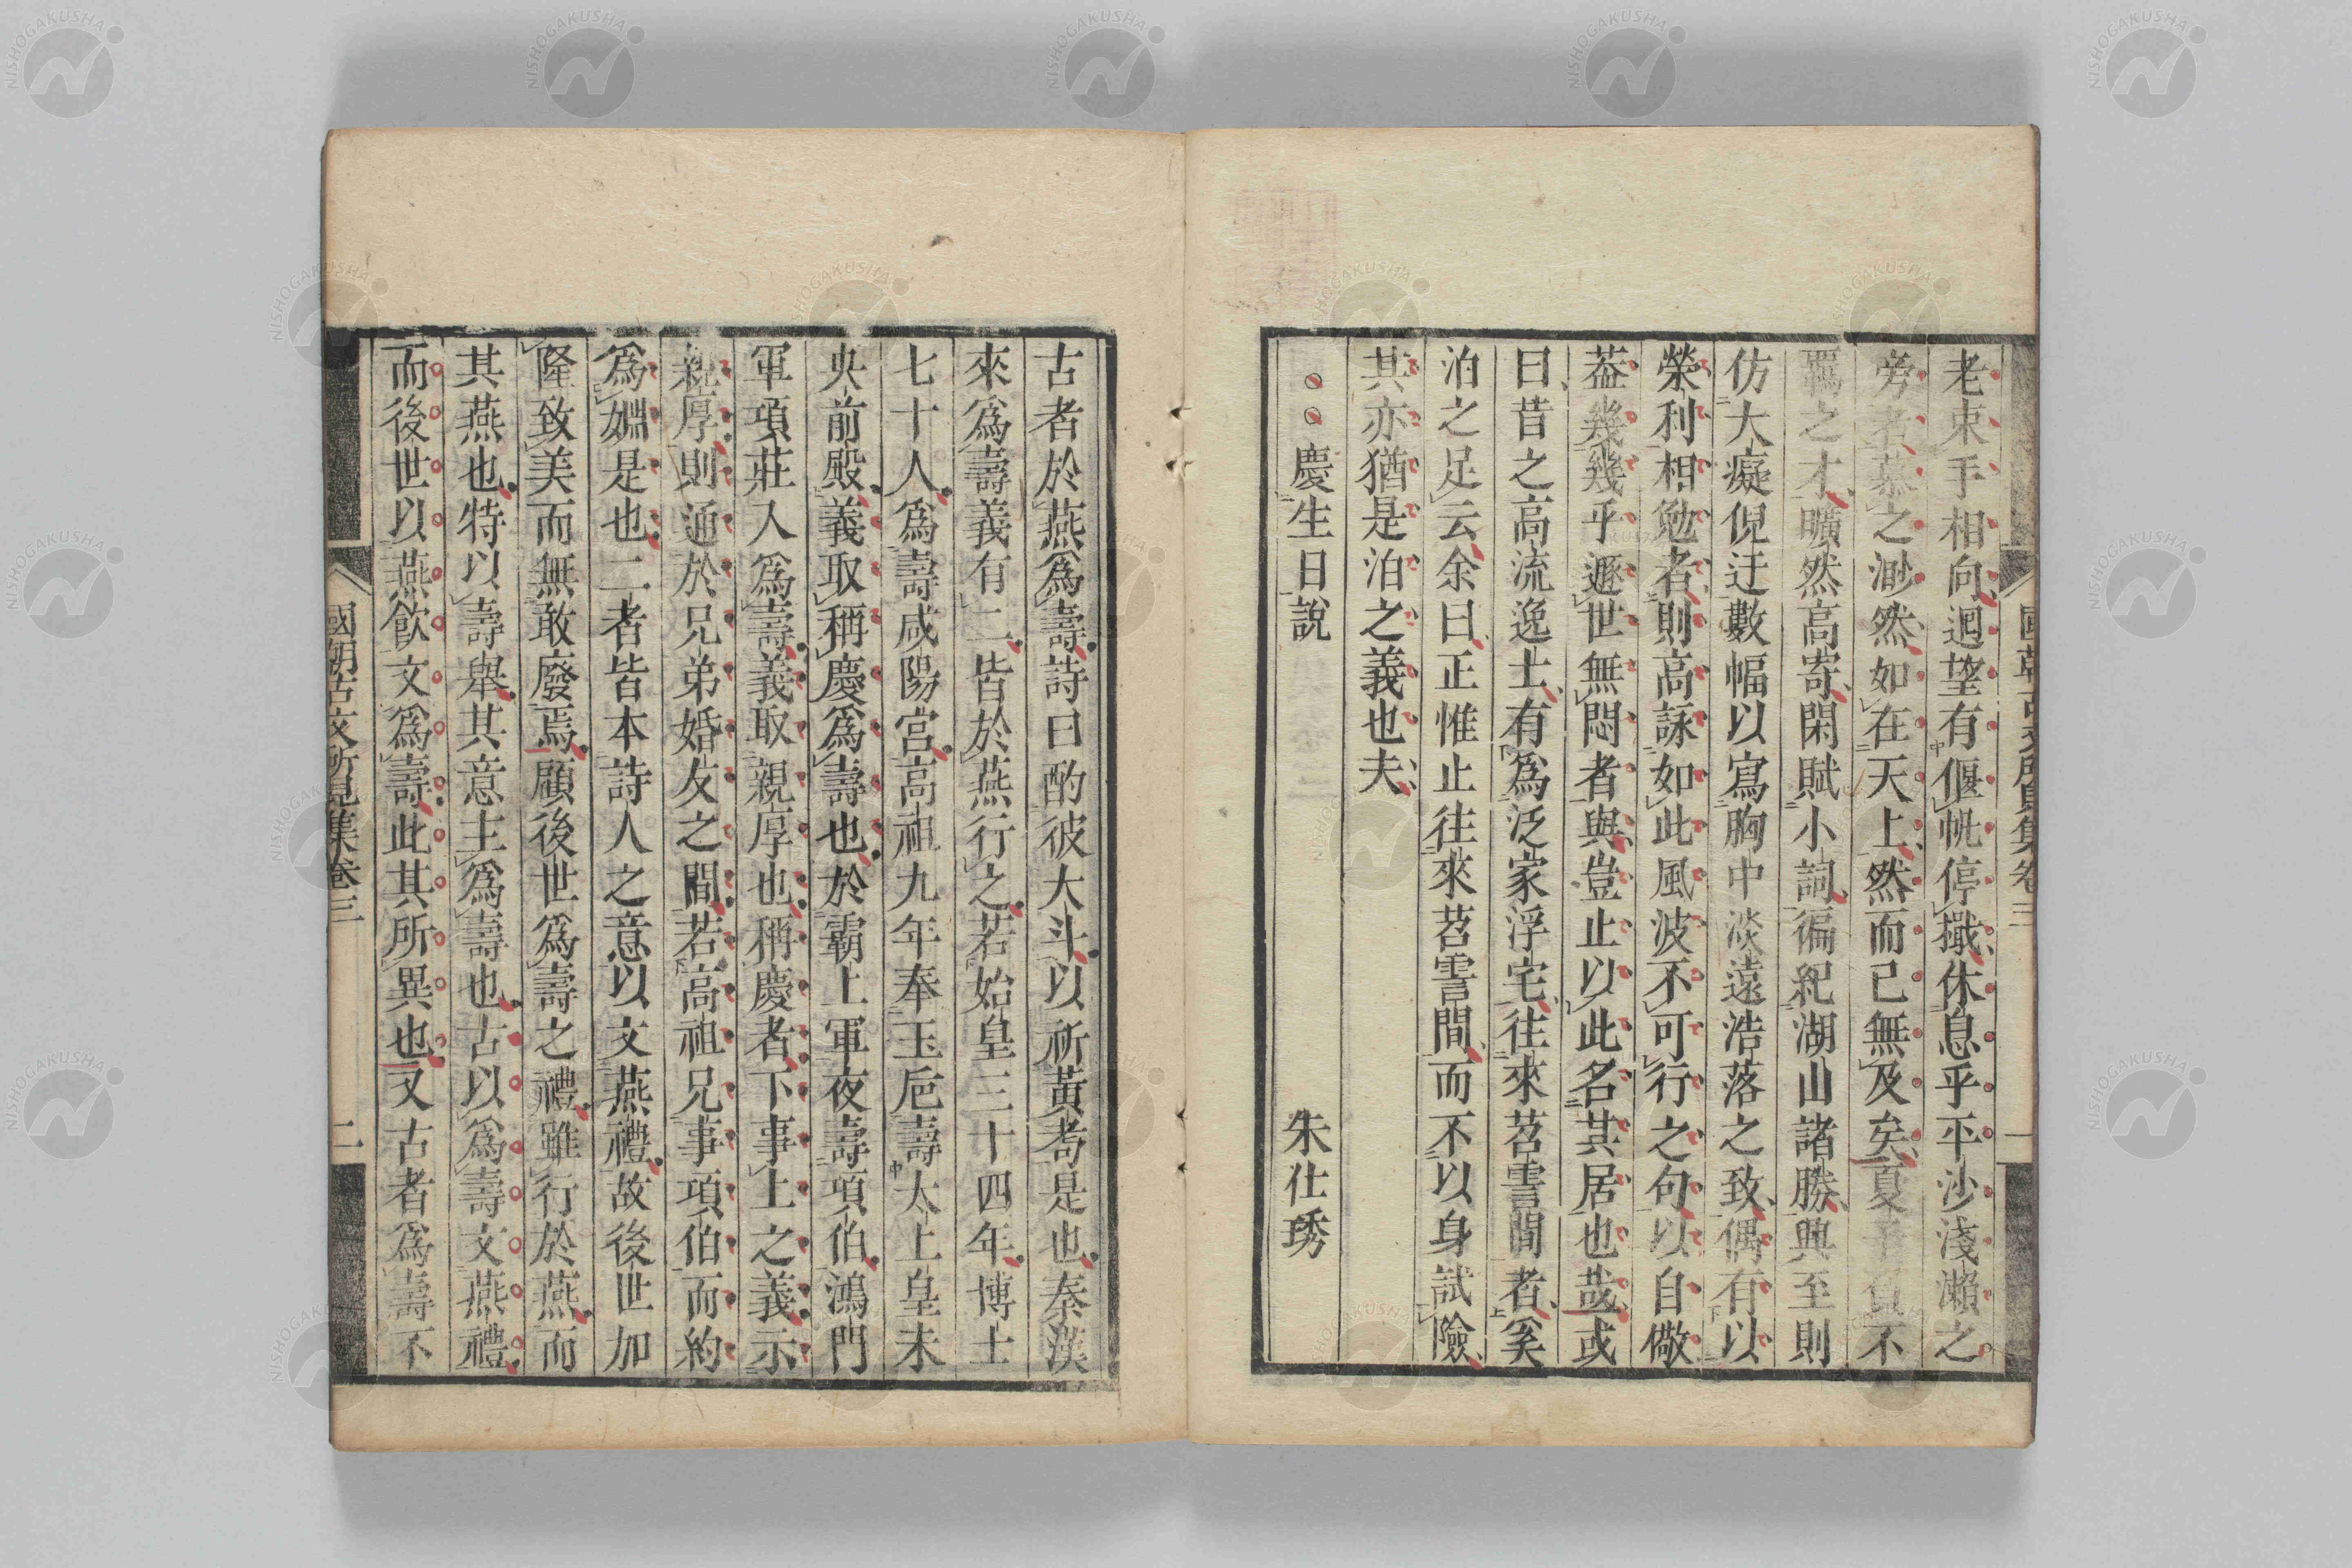 老束手相向迴望有偃帆停檝休息乎平沙淺瀨之
旁者慕之渺然如在天上然而已無及矣夏予負不
羈之才曠然高寄閑賦小詞徧紀湖山諸勝興至則
仿大癡倪迂數幅以寫胸中淡遠浩落之致偶有以
榮利相勉者則高詠如此風波不可行之句以自儆
葢幾幾乎遯世無悶者與豈止以此名其居也哉或
曰昔之高流逸士有為泛家浮宅往來苕霅間者奚
泊之足云余曰正惟止往來苕霅間而不以身試險
其亦猶是泊之義也夫
慶生日說 朱仕琇
古者於燕爲壽詩曰酌彼大斗以祈黃耇是也秦漢
來爲壽義有二皆於燕行之若始皇三十四年博士
七十人爲壽咸陽宮高祖九年奉玉巵壽太上皇未
央前殿義取稱慶爲壽也於霸上軍夜壽項伯鴻門
軍項莊入爲壽義取親厚也稱慶者下事上之義示
親厚則通於兄弟婚友之間若高祖兄事項伯而約
爲婣是也二者皆本詩人之意以文燕禮故後世加
隆致美而無敢廢焉顧後世爲壽之禮雖行於燕而
其燕也特以壽舉其意主爲壽也古以爲壽文燕禮
而後世以燕飲文爲壽此其所異也又古者爲壽不
國朝古文所見集卷三
二
NISHOGAKUSHA